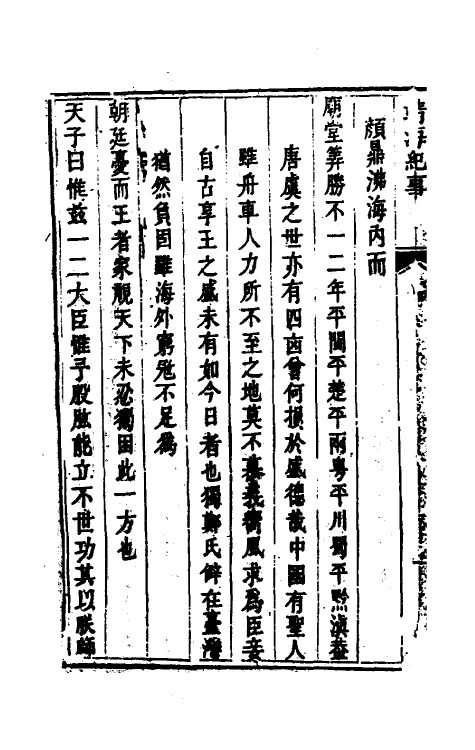 靖海紀事
顏鼎沸海内而
廟堂筭勝不一二年平閩平楚平兩粤平川蜀平黔滇葢
唐虞之世亦有四凶曾何損於盛德哉中國有聖人
雖舟車人力所不至之地莫不慕義嚮風求為臣妾
自古享王之盛未有如今日者也獨鄭氏僻在臺灣
猶然負固雖海外窮兇不足為
朝廷憂而王者家視天下未忍獨困此一方也
天子曰惟兹一二大臣惟予股肱能立不世功其以朕師